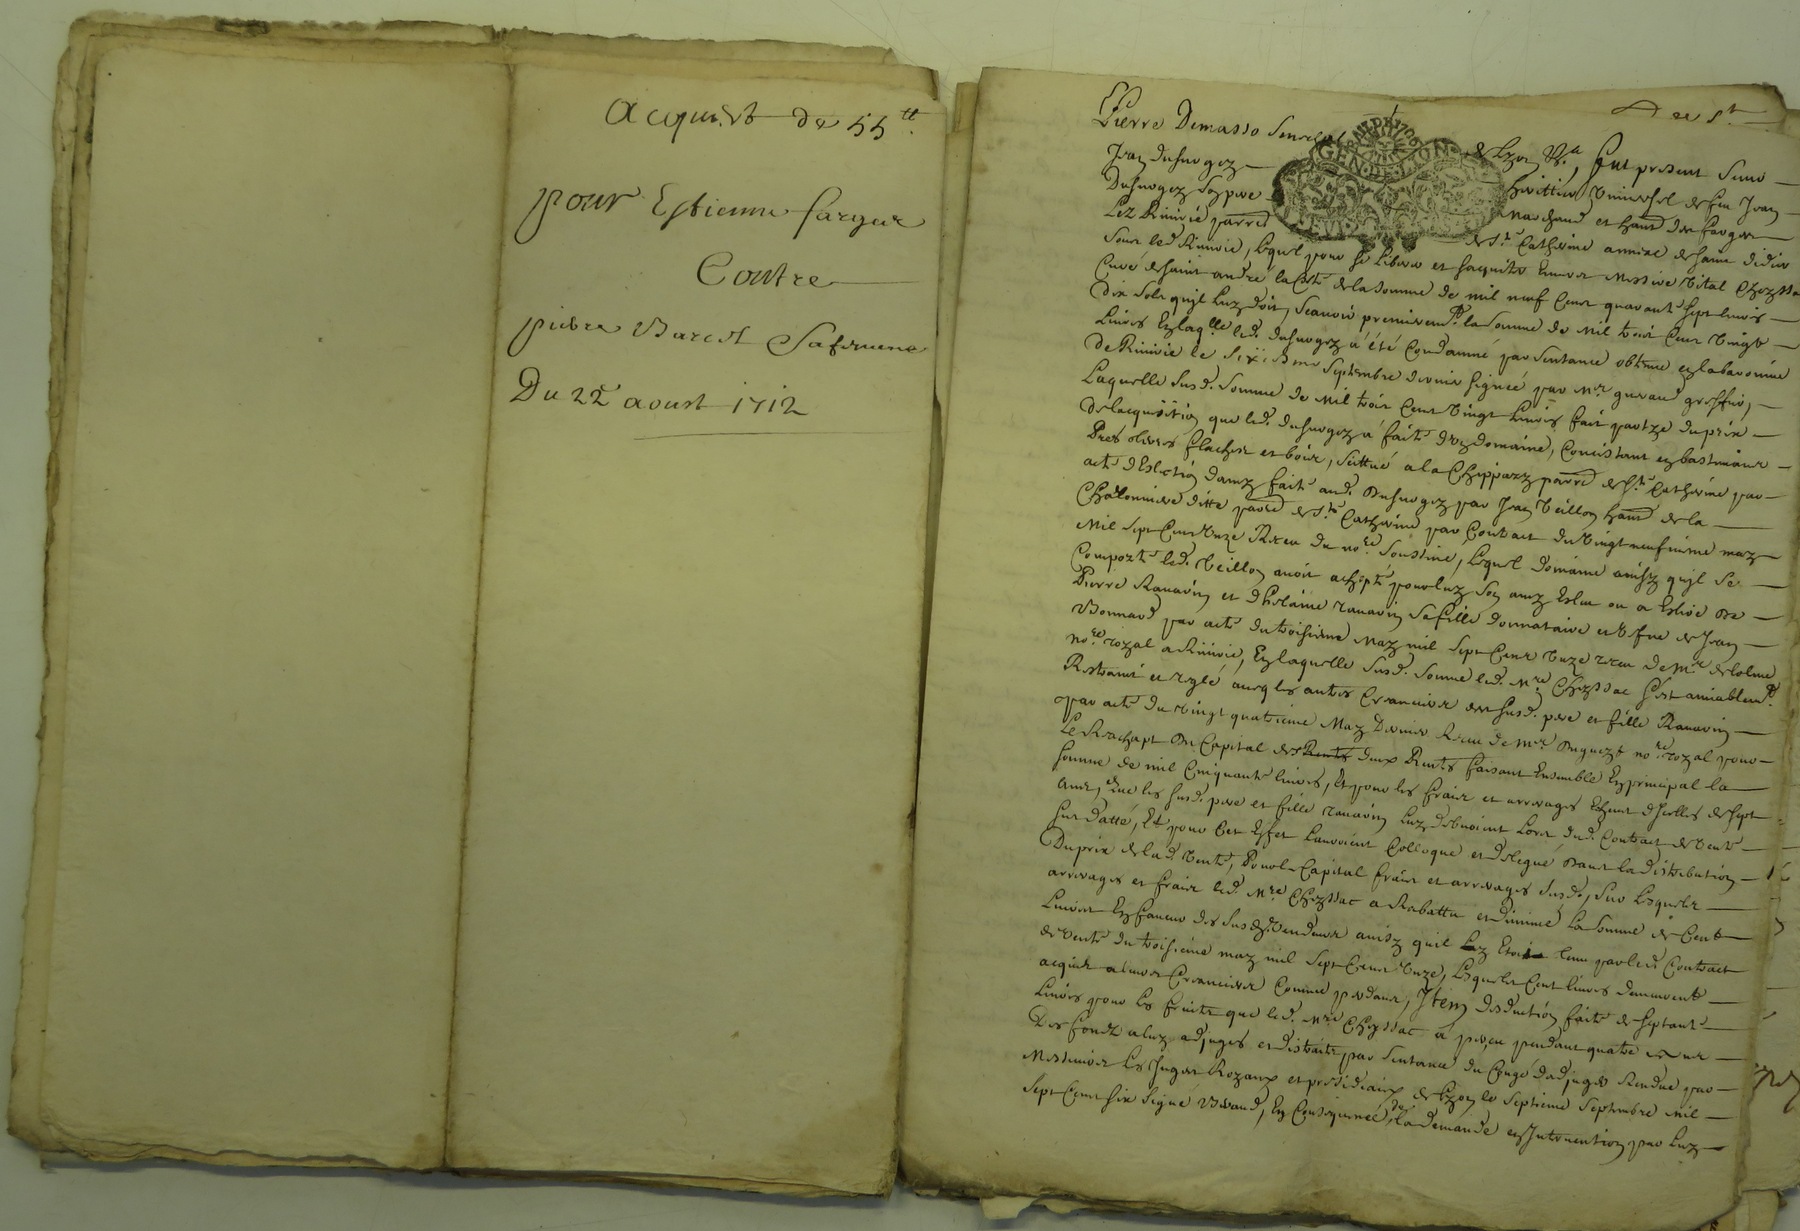 acquit de 55 tt.
pour Estienne fargue
Contre
pierre Barcet Saferiene
Du 22e aoust 1712
Pierre Demasso Senechal de Lyon &a, fut present sieur
Jean duhnogez heritier universel de feu Jean
Duhnogez son pere marchand et habt de
Lez Riverie parre de Ste Catherine
Sous led. Riverie, lequel pour se liberer et s'acquiter envers Messire Vital Cheyssac
Curé de saint andré la Coste de la somme de mil neuf Cent quarante sept livres
dix sols qu'il luy doit, sçavoir premieremt la somme de mil trois Cent vingt
livres en laqlle led. duhnogez a été Condamné par sentence obtenue en la baronnie
de Riverie le sixieme septembre dernier signée par Mre greffier,
Laquelle susd. somme de mil trois Cent vingt livres fait partye du prix
de lacquisition que led. duhnogez a faite d'un domaine, Consistant en bastiments
Prés terres et bois, scittué a la Chippary parre de Ste Catherine par
acte d'Eslection d'amy faite aud. duhnogez par Jean Veillon habt de la
ditte parre de Ste Catherine par Contract du vingt neufvieme may
Mil sept Cent unze Receu du nore soussigné, lequel domaine ainsy qu'il se
Comporte led. Veillon avoit achepté pour luy son amy Esleu ou a Eslire de
Pierre Ranavin et d'helaine ranavin sa fille donnataire et vefve de Jean
Bonnard par acte du troisieme may mil sept Cent unze receu de Mre delolme
nore royal a Riverie, En laquelle susd. somme led. Mre Cheyssac s'est amiablemt
Restraint et reglé avec les autres Creanciers des susd. pere et fille Ranavin
par acte du vingt quatrieme may dernier Receu de Mre nore royal pour
Le Rachapt du Capital de deux Rentes faisant Ensemble En principal la
somme de mil Cinquante livres, Et pour les fraix et arrerages Echeus d'jcelles de sept
ans, que les susd. pere et fille ranavin luy debvoient lors dud. Contract de vente
sus datté, Et pour Cet Effet l'auroient Colloqué et delegué dans la distribution
Du prix de lad. vente, Pour le Capital fraix et arrerages susd., sur lesquels
arrerages et fraix led. Mre Cheyssac a Rabattu et diminué la somme de Cent
livres En faveur des susd. vendeurs ainsy qu'il luy Etoit tenu par led. Contract
de vente du troisieme may mil sept Cent unze, lesquels Cent livres demeurent
acquis a leurs Creanciers Comme perdants, Item deduction faite de septante
livres pour les fruits que led. Mre Cheyssac a perçeu pendant quatre années
Des fonds a luy adjugés et distraits par sentence du Congé d'adjuger Rendue par
Messieurs les Juges Royaux et presidiaux de Lyon le septieme septembre mil
sept Cent six signé Beraud, En Consequence de la demande en Intervention par luy